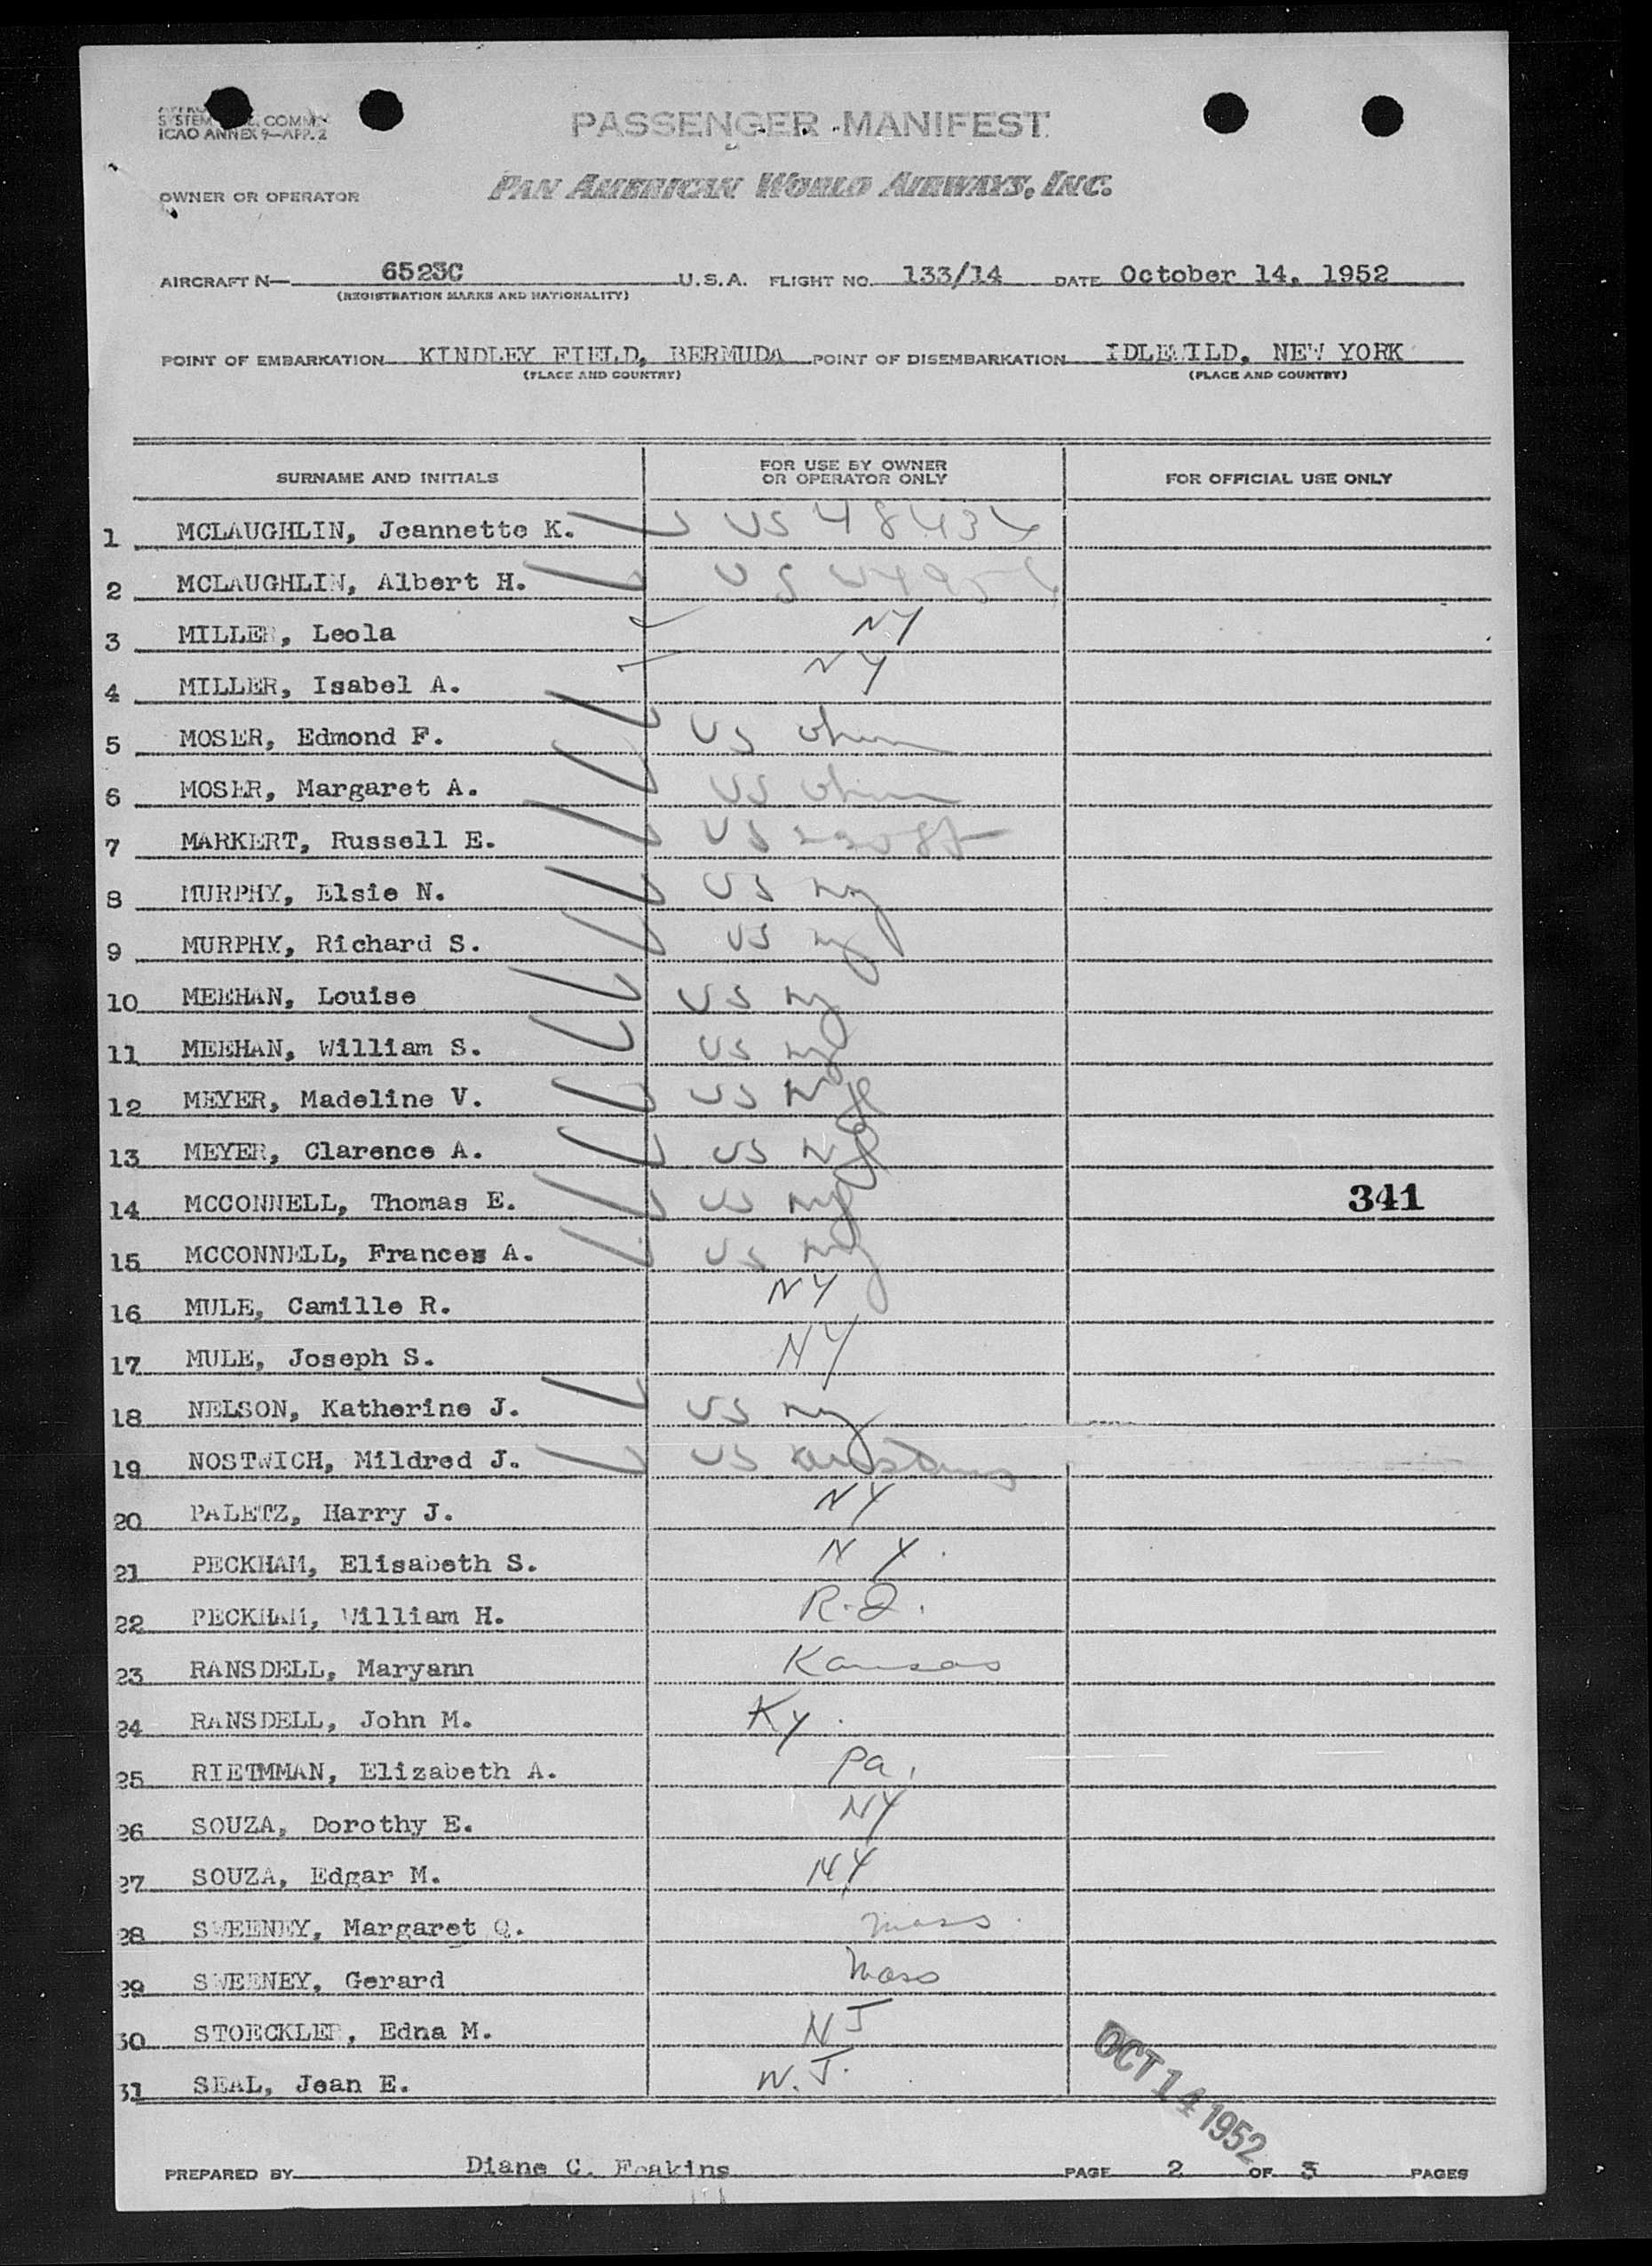 SYSTEM COMMN
ICAO ANNEX 9—APP. 2
PASSENGER MANIFEST
OWNER OR OPERATOR PAN AMERICAN WORLD AIRWAYS, INC.
AIRCRAFT N— 6523C U.S.A. FLIGHT NO. 133/14 DATE October 14, 1952
(REGISTRATION MARKS AND NATIONALITY)
POINT OF EMBARKATION KINDLEY FIELD, BERMUDA POINT OF DISEMBARKATION IDLEWILD, NEW YORK
(PLACE AND COUNTRY) (PLACE AND COUNTRY)
SURNAME AND INITIALS FOR USE BY OWNER OR OPERATOR ONLY FOR OFFICIAL USE ONLY
1 MCLAUGHLIN, Jeannette K. US
2 MCLAUGHLIN, Albert H. US
3 MILLER, Leola NY
4 MILLER, Isabel A. NY
5 MOSER, Edmond F. US
6 MOSER, Margaret A. US
7 MARKERT, Russell E. US
8 MURPHY, Elsie N. US ny
9 MURPHY, Richard S. US ny
10 MEEHAN, Louise US ny
11 MEEHAN, William S. US ny
12 MEYER, Madeline V. US NY
13 MEYER, Clarence A. US NY
14 MCCONNELL, Thomas E. US ny 341
15 MCCONNELL, Frances A. US ny
16 MULE, Camille R. NY
17 MULE, Joseph S. NY
18 NELSON, Katherine J. US ny
19 NOSTWICH, Mildred J. US
20 PALETZ, Harry J. NY
21 PECKHAM, Elisabeth S. NY.
22 PECKHAM, William H. R.I.
23 RANSDELL, Maryann Kansas
24 RANSDELL, John M. Ky.
25 RIETMMAN, Elizabeth A. Pa.
26 SOUZA, Dorothy E. NY
27 SOUZA, Edgar M. NY
28 SWEENEY, Margaret Q. Mass.
29 SWEENEY, Gerard Mass
30 STOECKLER, Edna M. NJ
31 SEAL, Jean E. N.J.
OCT 14 1952
PREPARED BY Diane C. Feakins PAGE 2 OF 3 PAGES